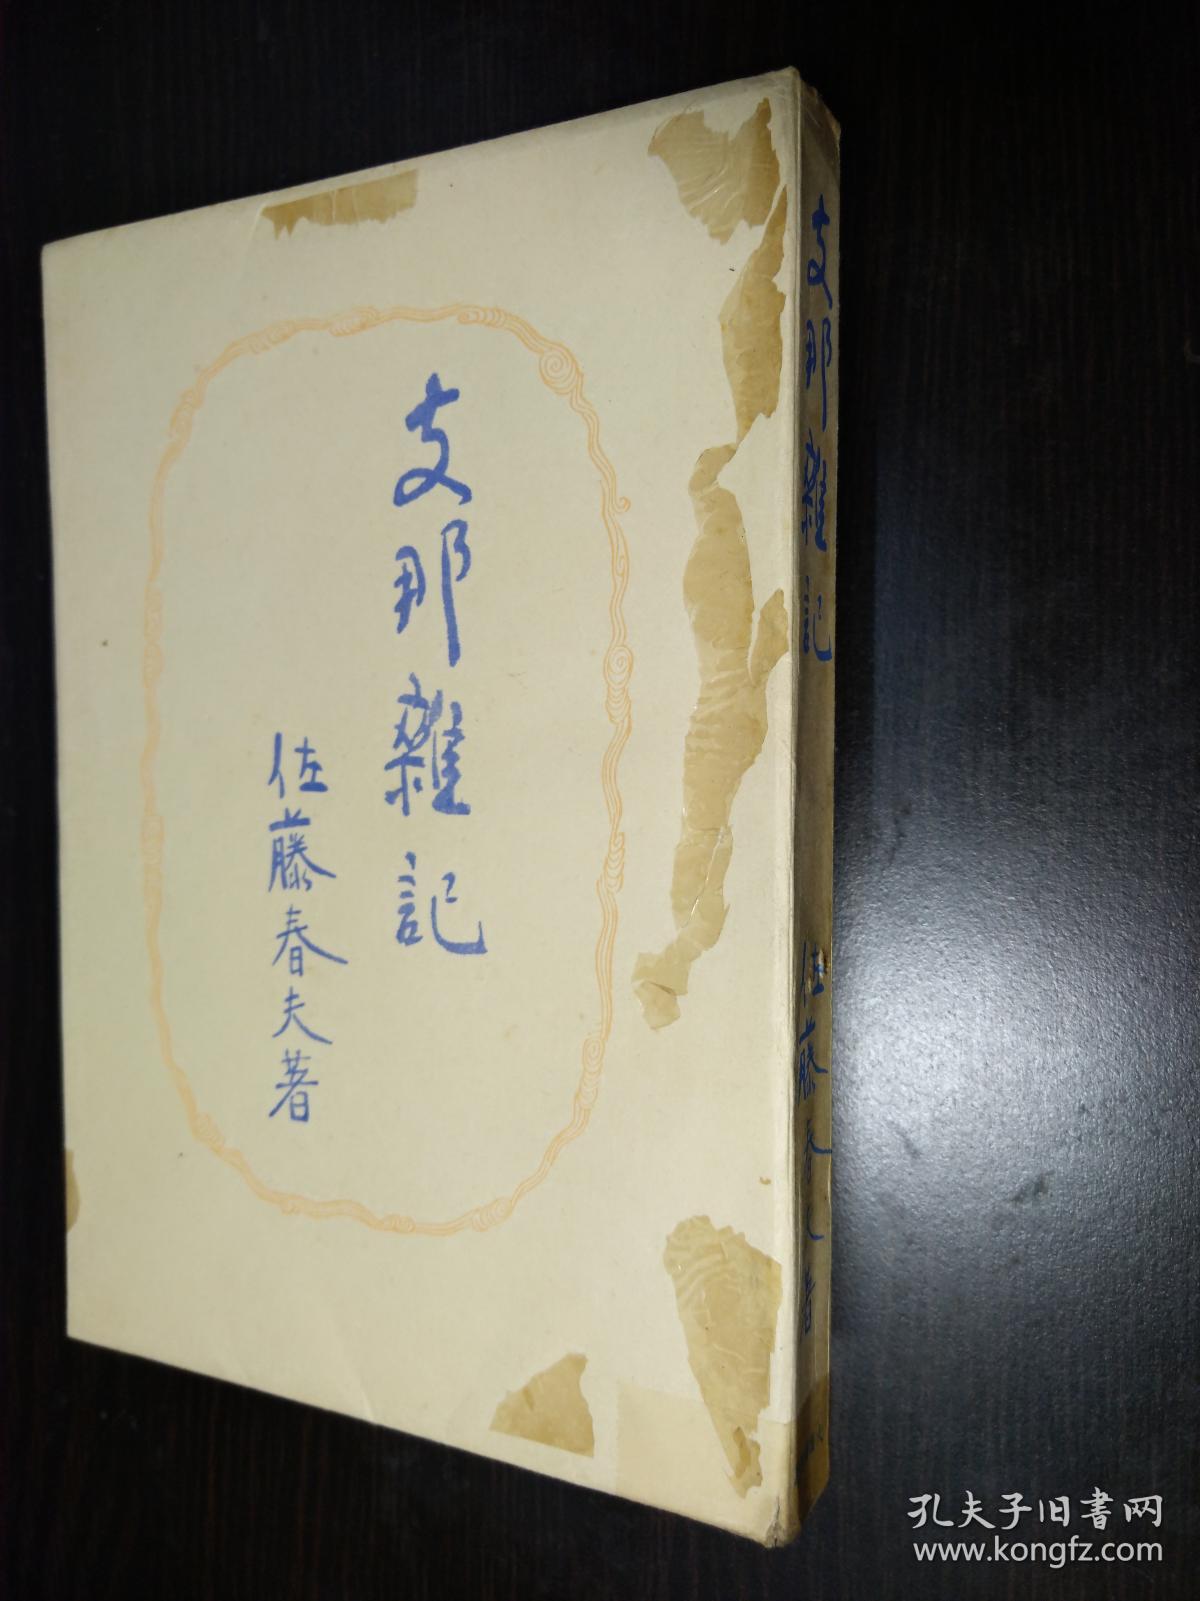 支那雜記
佐藤春夫著
支那雜記
佐藤春夫著
孔夫子旧书网
www.kongfz.com